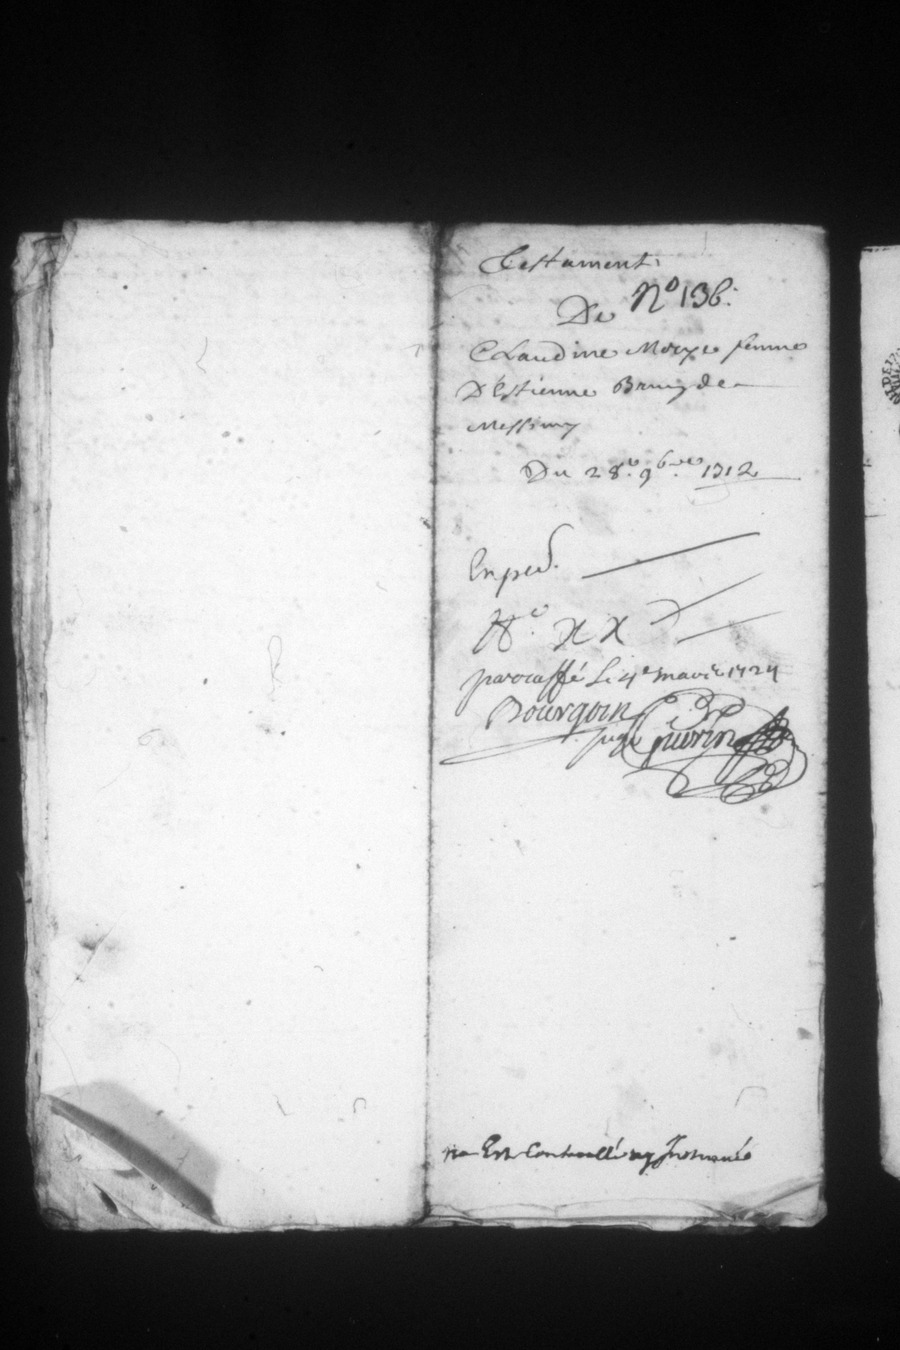 Testament
De N° 136.
Claudine Moyse femme
D'Estienne Bruyde
Messimy
Du 28e. 9bre. 1712
Exped.
N°. XX
paraffé Le 4e mars 1724
Bourgoin
juge Guerin
na Est Controllé ny Insinué